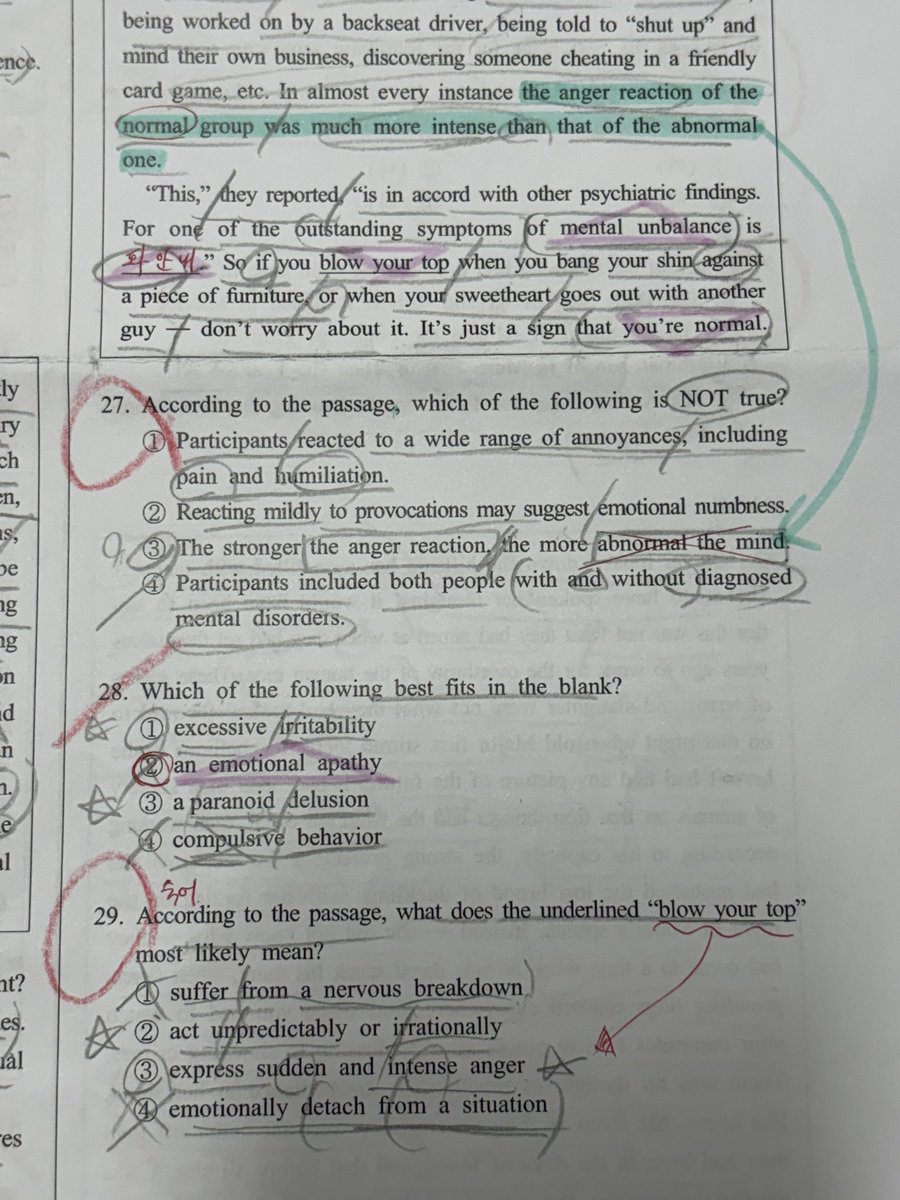 being worked on by a backseat driver, being told to “shut up” and
ence.
mind their own business, discovering someone cheating in a friendly
card game, etc. In almost every instance the anger reaction of the
normal group was much more intense than that of the abnormal
one.
“This,” they reported, “is in accord with other psychiatric findings.
For one of the outstanding symptoms of mental unbalance is
화 안내.” So if you blow your top when you bang your shin against
a piece of furniture, or when your sweetheart goes out with another
guy — don’t worry about it. It’s just a sign that you’re normal.
27. According to the passage, which of the following is NOT true?
① Participants reacted to a wide range of annoyances, including
pain and humiliation.
② Reacting mildly to provocations may suggest emotional numbness.
③ The stronger the anger reaction, the more abnormal the mind.
④ Participants included both people with and without diagnosed
mental disorders.
28. Which of the following best fits in the blank?
① excessive irritability
② an emotional apathy
③ a paranoid delusion
④ compulsive behavior
숙어
29. According to the passage, what does the underlined “blow your top”
most likely mean?
① suffer from a nervous breakdown
② act unpredictably or irrationally
③ express sudden and intense anger
④ emotionally detach from a situation